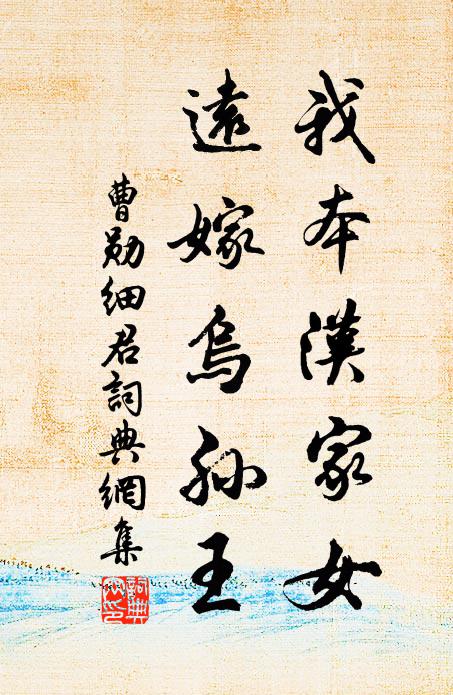 我本漢家女
遠嫁烏孫王
曹勛細君詞典網集